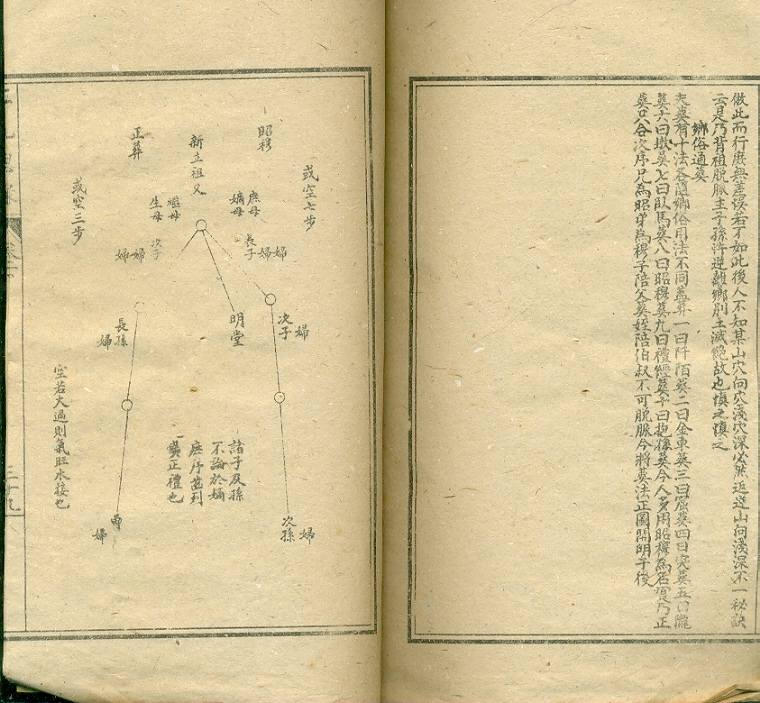 倣此而行庶無差誤若不如此後人不知某山穴向穴淺穴深必然返逆山向淺深不一秘訣
云是乃背祖脫脈主子孫将逆離鄉別土滅絕故也慎之慎之
鄉俗通葬
夫葬有十法各隨鄉俗用法不同葢葬一曰阡陌葬二曰金車葬三曰窟葬四曰突葬五曰隴
葬六曰墩葬七曰臥馬葬八曰昭穆葬九曰禮經葬十曰抱孫葬今人多用昭穆為名實乃正
葬只合次序兄為昭弟為穆子陪父葬姪陪伯叔不可脫脈今將葬法正圖開明于後
或空七步
昭穆
新立祖父
正葬
或空三步
庶母
嫡母
繼母
生母
長子
婦婦
次子
婦婦
明堂
次子
婦
長孫
婦
次孫
婦
婦
空若大過則氣旺水接也
諸子及孫
不論於嫡
庶序
正禮也
三十九